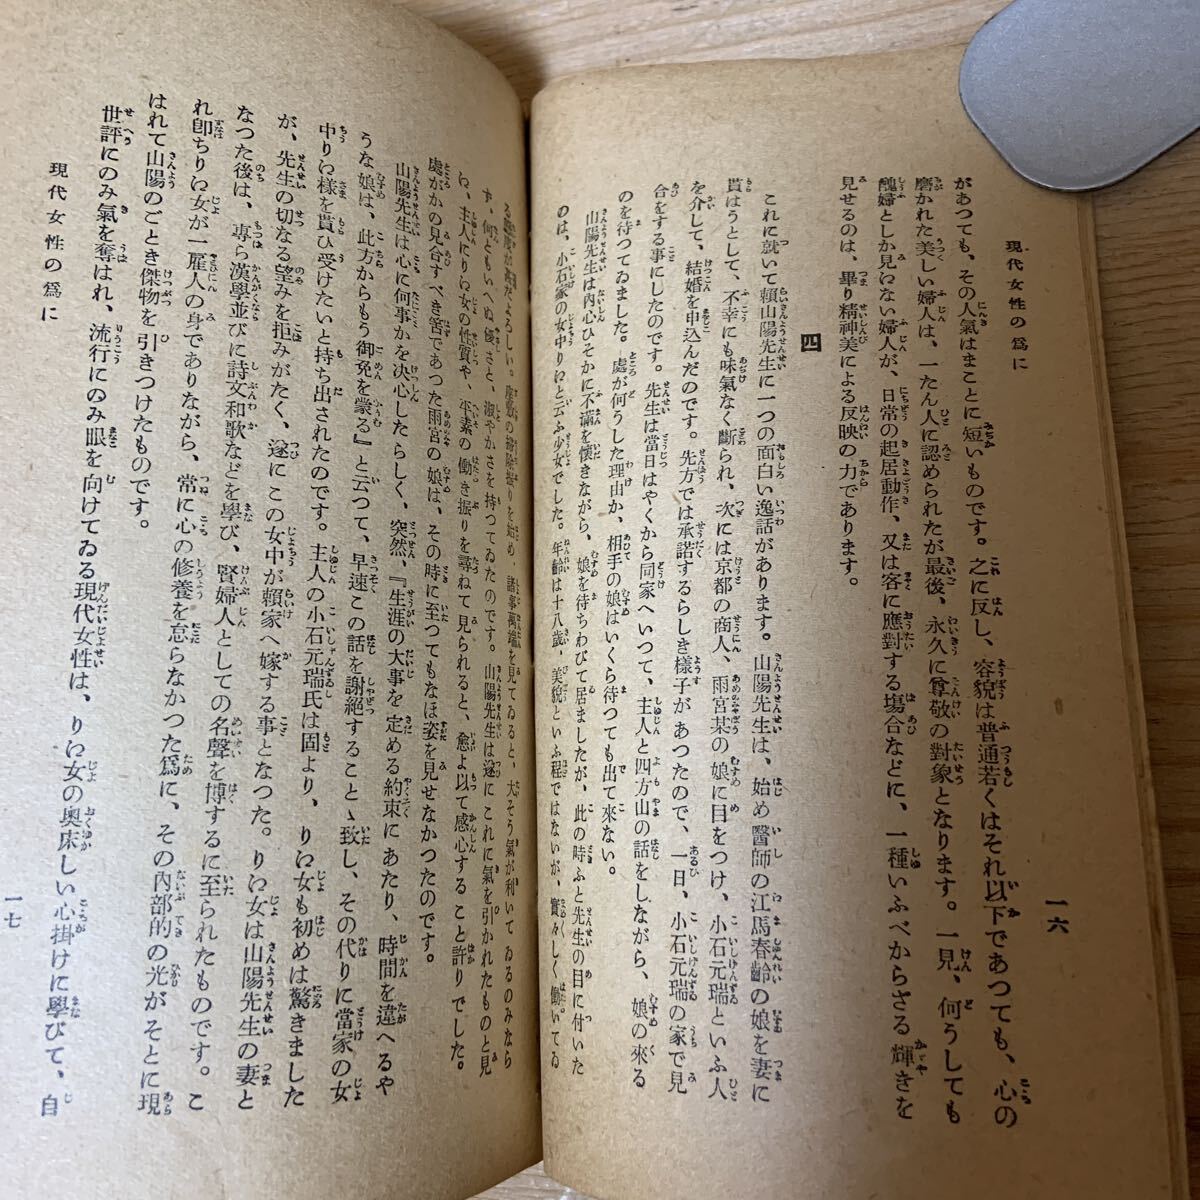 現代女性の爲に
一六
があつても、その人氣はまことに短いものです。之に反し、容貌は普通若くはそれ以下であつても、心の
磨かれた美しい婦人は、一たん人に認められたが最後、永久に尊敬の對象となります。一見、何うしても
醜婦としか見江ない婦人が、日常の起居動作、又は客に應對する場合などに、一種いふべからざる輝きを
見せるのは、畢り精神美による反映の力であります。
四
これに就いて賴山陽先生に一つの面白い逸話があります。山陽先生は、始め醫師の江馬春齡の娘を妻に
貰はうとして、不幸にも味氣なく斷られ、次には京都の商人、雨宮某の娘に目をつけ、小石元瑞といふ人
を介して、結婚を申込んだのです。先方では承諾するらしき樣子があつたので、一日、小石元瑞の家で見
合をする事にしたのです。先生は當日はやくから同家へいつて、主人と四方山の話をしながら、娘の來る
のを待つてゐました。處が何うした理由か、相手の娘はいくら待つても出て來ない。
山陽先生は内心ひそかに不滿を懷きながら、娘を待ちわびて居ましたが、此の時ふと先生の目に付いた
のは、小石家の女中り江と云ふ少女でした。年齡は十八歲、美貌といふ程ではないが、實々しく働いてゐ
る態度が甚だよろしい。座敷の掃除振りを始め、諸事萬端を見てゐると、大そう氣が利いてゐるのみなら
ず、何ともいへぬ優さと、淑やかさを持つてゐたのです。山陽先生は遂にこれに氣を引かれたものと見
江、主人にり江女の性質や、平素の働き振りを尋ねて見られると、愈よ以て感心すること許りでした。
處がかの見合すべき筈であつた雨宮の娘は、その時に至つてもなほ姿を見せなかつたのです。
山陽先生は心に何事かを決心したらしく、突然、『生涯の大事を定める約束にあたり、時間を違へるや
うな娘は、此方からもう御免を蒙る』と云つて、早速この話を謝絶することゝ致し、その代りに當家の女
中り江樣を貰ひ受けたいと持ち出されたのです。主人の小石元瑞氏は固より、り江女も初めは驚きました
が、先生の切なる望みを拒みがたく、遂にこの女中が賴家へ嫁する事となつた。り江女は山陽先生の妻と
なつた後は、專ら漢學並びに詩文和歌などを學び、賢婦人としての名聲を博するに至られたものです。こ
れ卽ちり江女が一雇人の身でありながら、常に心の修養を怠らなかつた爲に、その内部的の光がそとに現
はれて山陽のごとき傑物を引きつけたものです。
世評にのみ氣を奪はれ、流行にのみ眼を向けてゐる現代女性は、り江女の奧床しい心掛けに學びて、自
現代女性の爲に
一七